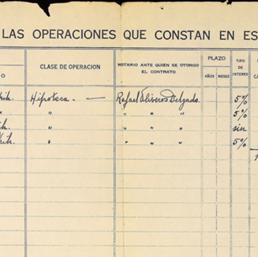 LAS OPERACIONES QUE CONSTAN EN ES
CLASE DE OPERACION
NOTARIO ANTE QUIEN SE OTORGO EL CONTRATO
PLAZO
AÑOS MESES
TIPO DE INTERES
O
C
Hipoteca. — Rafael Oliveros Delgado. 5%
" " " " 5%
" " " " sin
" " " " 5%